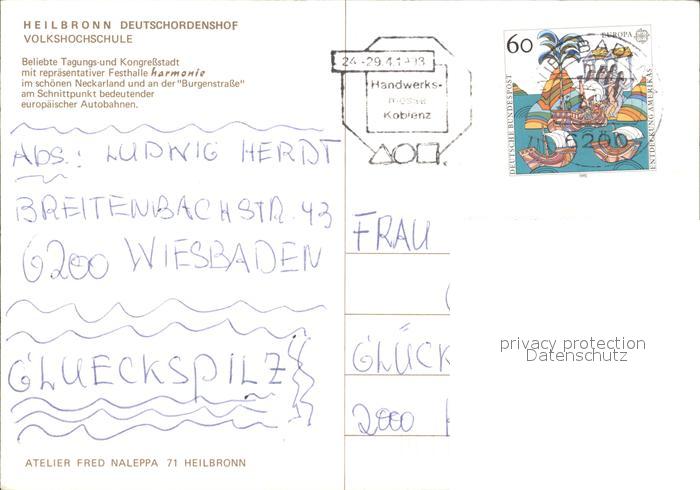 HEILBRONN DEUTSCHORDENSHOF
VOLKSHOCHSCHULE
Beliebte Tagungs-und Kongreßstadt
mit repräsentativer Festhalle harmonie
im schönen Neckarland und an der "Burgenstraße"
am Schnittpunkt bedeutender
europäischer Autobahnen.
ABS.: LUDWIG HERDT
BREITENBACHSTR. 43
6200 WIESBADEN
GLUECKSPILZ
ATELIER FRED NALEPPA 71 HEILBRONN
24.-29.4.1993
Handwerks-
messe
Koblenz
60
EUROPA
DEUTSCHE BUNDESPOST
ENTDECKUNG AMERIKAS
6200
FRAU
GLÜCK
2000
privacy protection
Datenschutz